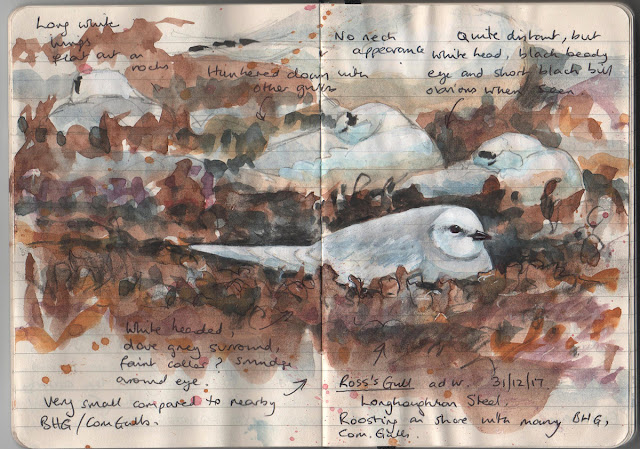 Long white
wings
flat out on
rocks
Hunkered down with
other gulls
No neck
appearance
Quite distant, but
white head, black beady
eye and short black bill
obvious when seen
White headed,
dove grey surround,
faint collar? Smudge
around eye.
Very small compared to nearby
BHG/Com Gulls.
Ross's Gull ad w. 31/12/17.
Longhoughton Steel.
Roosting on shore with many BHG,
Com. Gulls.